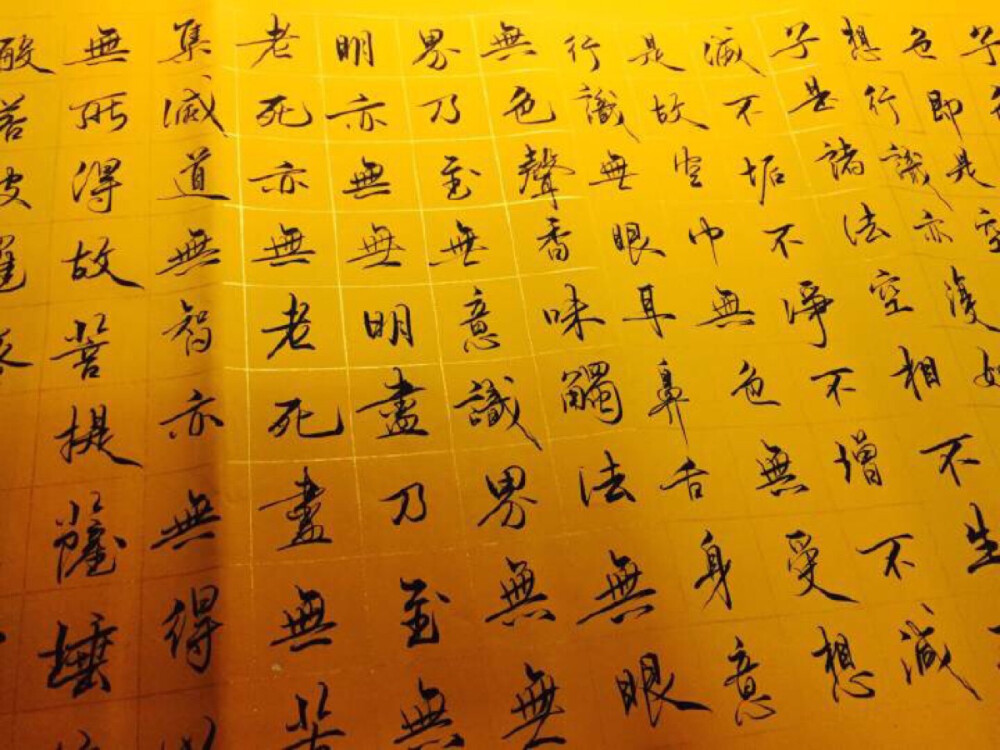 子
色即是空
想行識亦復如
子是諸法空相不生
滅不垢不淨不增不減
是故空中無色無受想
行識無眼耳鼻舌身意
無色聲香味觸法無眼
界乃至無意識界無無
明亦無無明盡乃至無
老死亦無老死盡無苦
集滅道無智亦無得
無所得故菩提薩埵
般若波羅